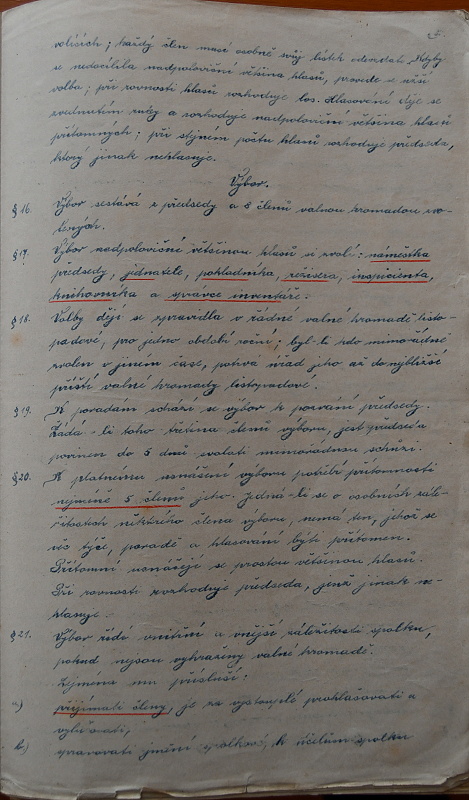 5.
volících; každý člen musí osobně svůj lístek odevzdati. Kdyby
se nedocílila nadpoloviční většina hlasů, provede se užší
volba; při rovnosti hlasů rozhoduje los. Hlasování děje se
zvednutím ruky a rozhoduje nadpoloviční většina hlasů
přítomných; při stejném počtu hlasů rozhoduje předseda,
který jinak nehlasuje.
Výbor.
§ 16. Výbor sestává z předsedy a 8 členů valnou hromadou vo-
lených.
§ 17. Výbor nadpoloviční většinou hlasů si zvolí: náměstka
předsedy, jednatele, pokladníka, režiséra, inspicienta,
knihovníka a správce inventáře.
§ 18. Volby dějí se zpravidla v řádné valné hromadě listo-
padové, pro jedno období roční; byl-li kdo mimořádně
zvolen v jiném čase, potrvá úřad jeho až do nejbližší
příští valné hromady listopadové.
§ 19. K poradám schází se výbor k pozvání předsedy.
Žádá-li toho třetina členů výboru, jest předseda
povinen do 5 dnů svolati mimořádnou schůzi.
§ 20. K platnému usnášení výboru potřebí přítomnosti
nejméně 5 členů jeho. Jedná-li se o osobních zále-
žitostech některého člena výboru, nemá ten, jehož se
věc týče, poradě a hlasování býti přítomen.
Přítomní usnášejí se prostou většinou hlasů.
Při rovnosti rozhoduje předseda, jenž jinak ne-
hlasuje.
§ 21. Výbor řídí vnitřní a vnější záležitosti spolku,
pokud nejsou vyhraženy valné hromadě.
Zejména mu přísluší:
a) přijímati členy, je za vystouplé prohlašovati a
vylučovati,
b) spravovati jmění spolkové, k účelům spolku